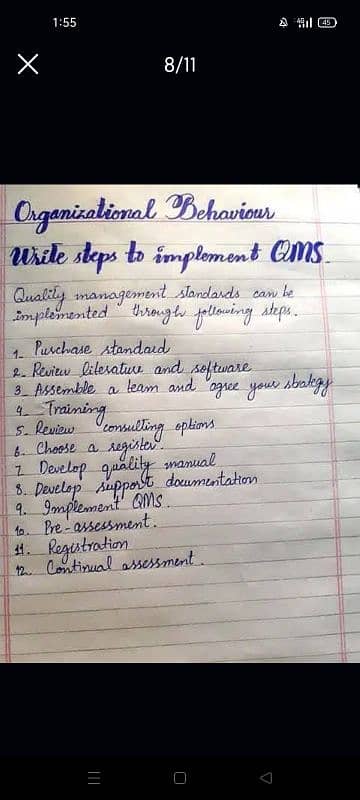 1:55
4G
45
8/11
Organizational Behaviour
Write steps to implement QMS.
Quality management standards can be
implemented through following steps.
1. Purchase standard
2. Review literature and software
3. Assemble a team and agree your strategy
4. Training
5. Review consulting options
6. Choose a register.
7. Develop quality manual
8. Develop support documentation
9. Implement QMS.
10. Pre-assessment.
11. Registration
12. Continual assessment.